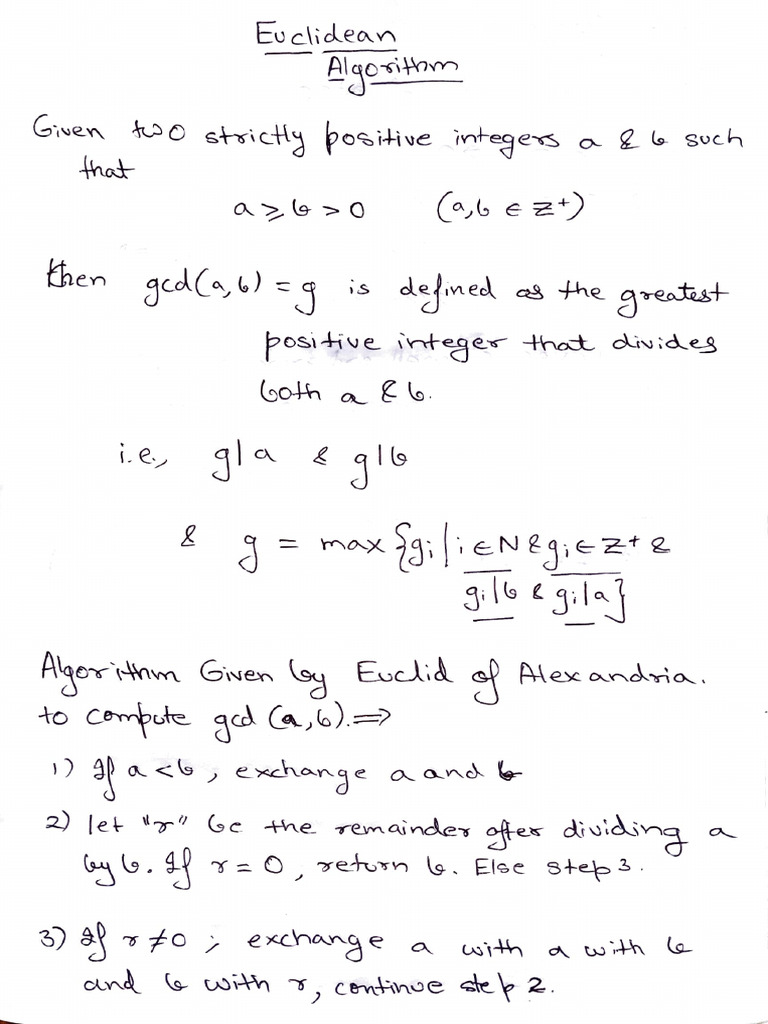 Euclidean
Algorithm
Given two strictly positive integers a & b such
that
a ⩾ b > 0 (a,b ∈ Z⁺)
then gcd(a,b) = g is defined as the greatest
positive integer that divides
both a & b.
i.e., g|a & g|b
& g = max{gᵢ|i ∈ N & gᵢ ∈ Z⁺ &
gᵢ|b & gᵢ|a}
Algorithm Given by Euclid of Alexandria.
to compute gcd (a,b).⇒
1) If a < b, exchange a and b
2) let "r" be the remainder after dividing a
by b. If r = 0, return b. Else step 3.
3) If r ≠ 0; exchange a with a with b
and b with r, continue step 2.